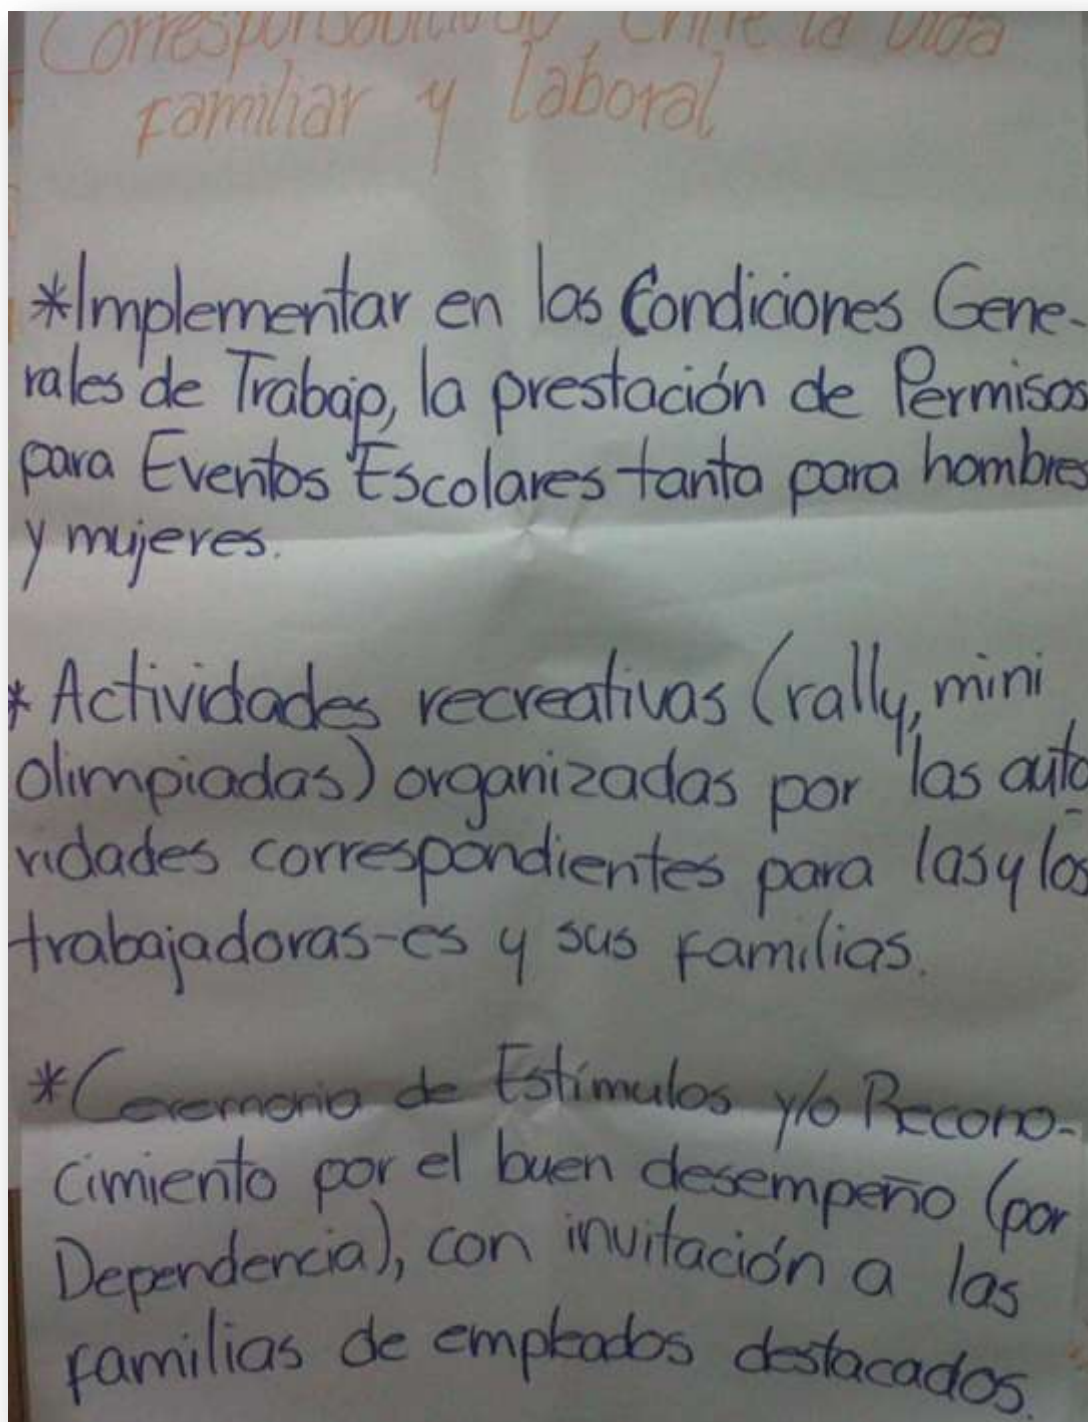 Corresponsabilidad entre la vida
familiar y laboral
*Implementar en las Condiciones Gene-
rales de Trabajo, la prestación de Permisos
para Eventos Escolares tanto para hombres
y mujeres.
* Actividades recreativas (rally, mini
olimpiadas) organizadas por las auto
ridades correspondientes para las y los
trabajadoras-es y sus familias.
*Ceremonia de Estímulos y/o Recono-
cimiento por el buen desempeño (por
Dependencia), con invitación a las
familias de empleados destacados.